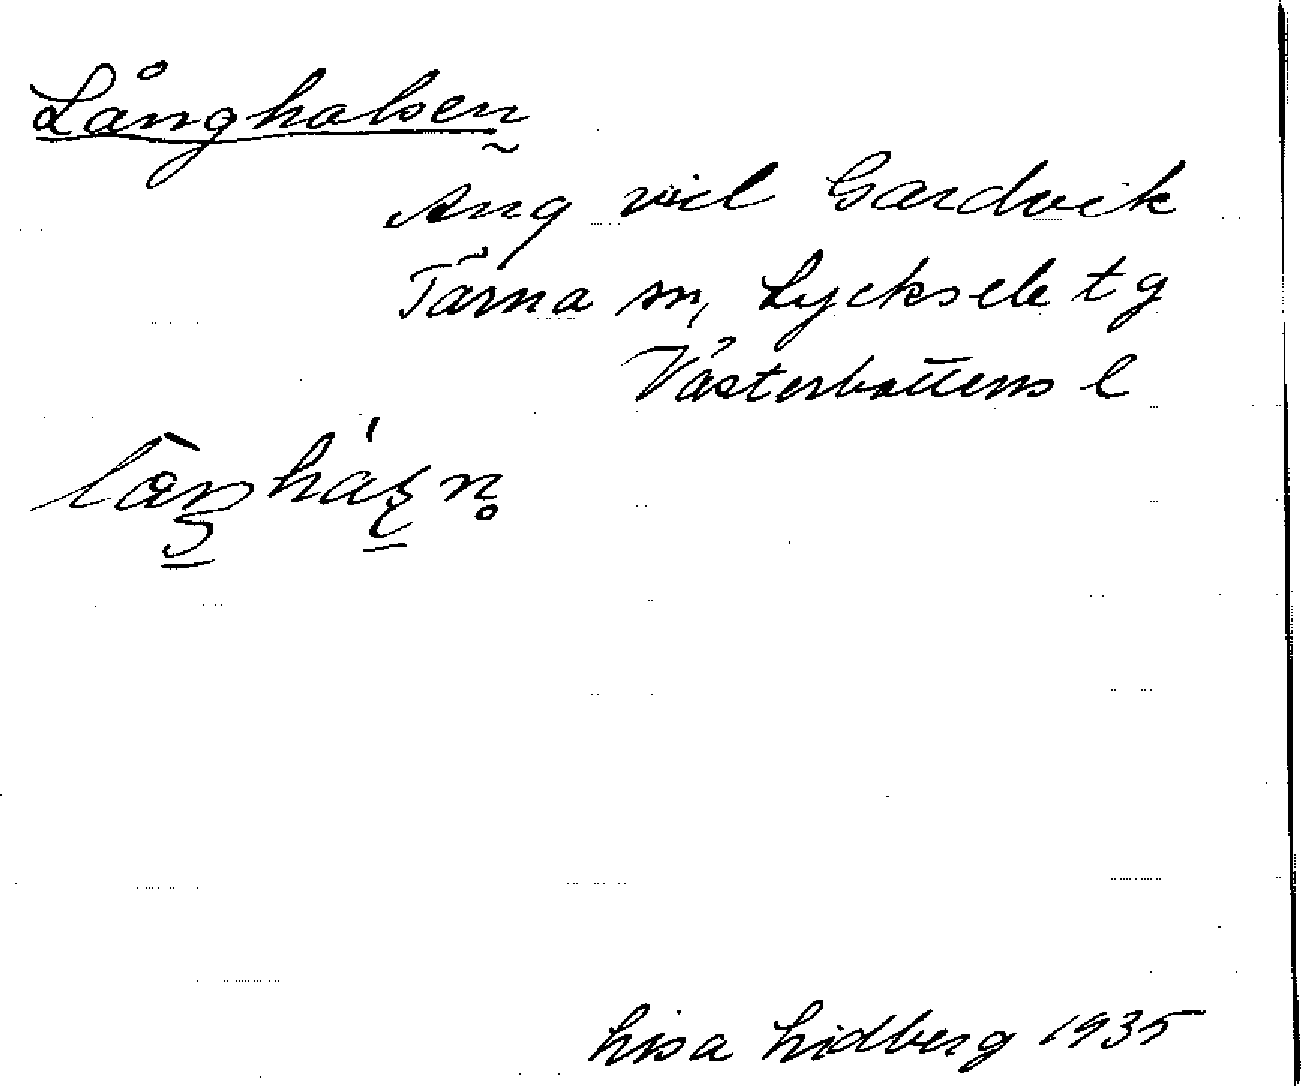 Långhalsen
Äng vid Gardvik
Tärna sn, Lycksele tg
Västerbottens l
Lisa Lidberg 1935